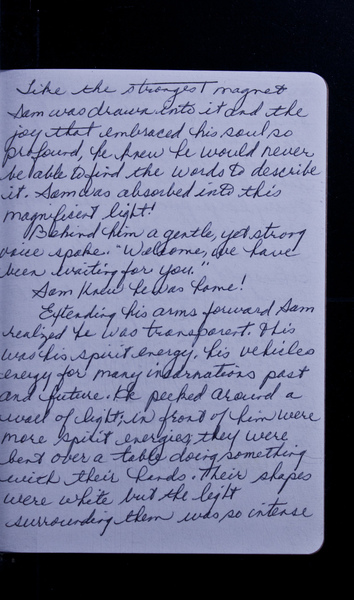 Like the strongest magnet
Sam was drawn into it and the
joy that embraced his soul, so
profound, he knew he would never
be able to find the words to describe
it. Sam was absorbed into this
magnificent light!
Behind him a gentle, yet strong
voice spoke. "Welcome, we have
been waiting for you."
Sam knew he was home!
Extending his arms forward Sam
realized he was transparent. This
was his spirit energy, his vehicles
energy for many incarnations past
and future. He peeked around a
wall of light; in front of him were
more spirit energies, they were
bent over a table doing something
with their hands. Their shapes
were white but the light
surrounding them was so intense